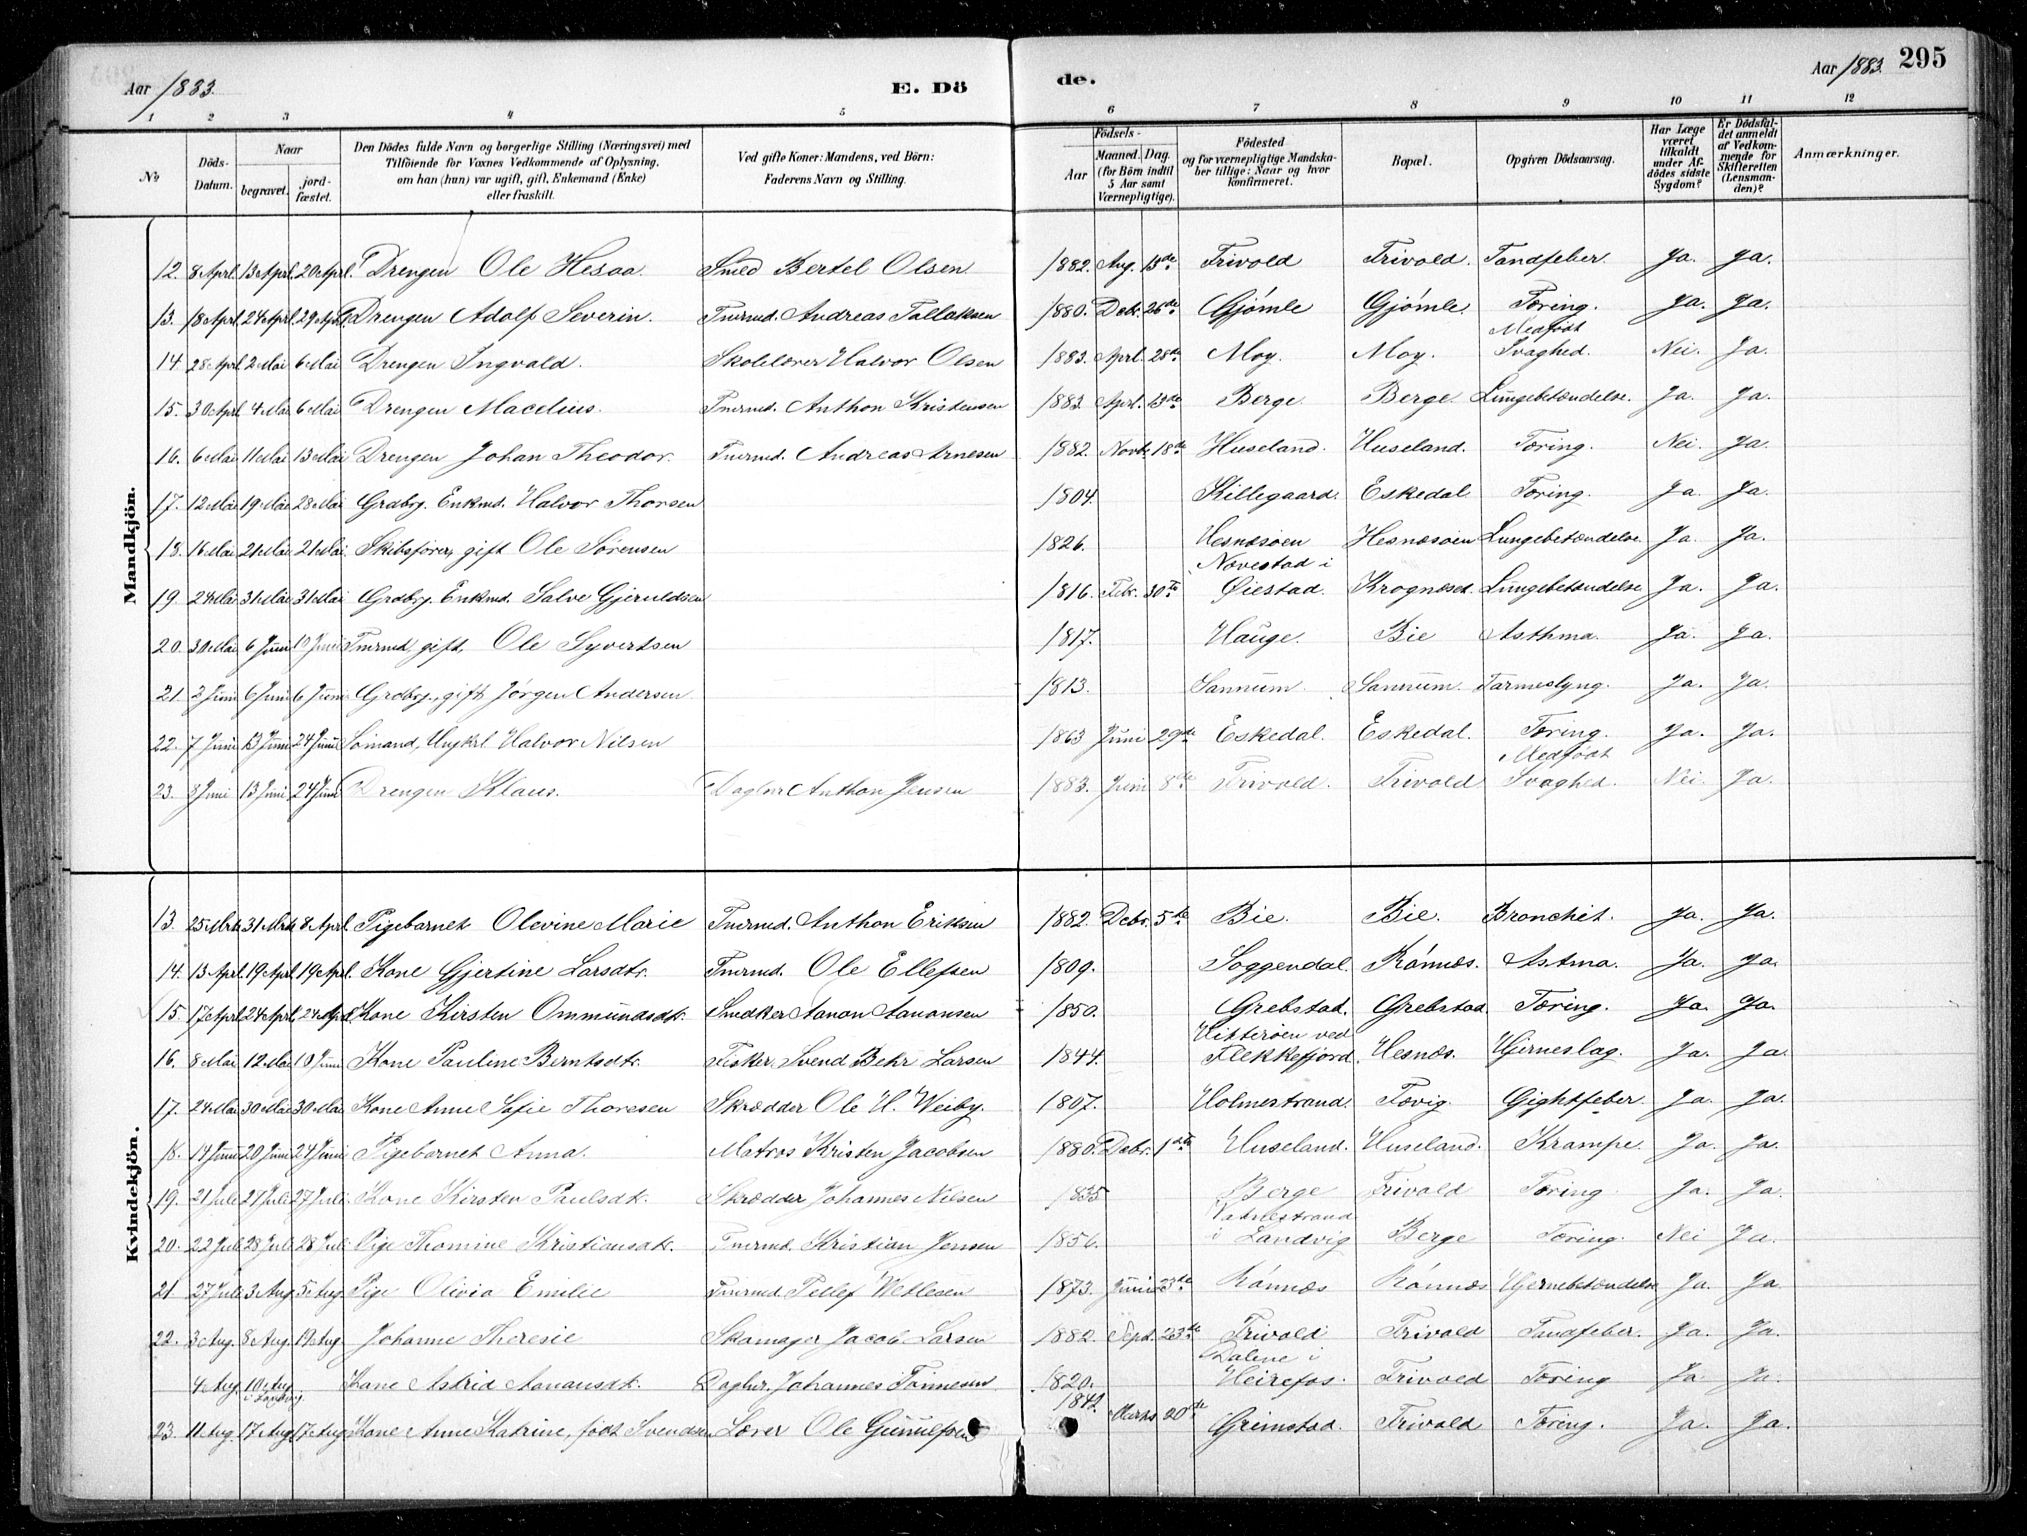 Aar 1883. E. Dö de. Aar 1883. 295
1 2 3 4 5 6 7 8 9 10 11 12
No Döds-Datum. Naar begravet. jord-fæstet. Den Dödes fulde Navn og borgerlige Stilling (Næringsvei) med Tilföiende for Voxnes Vedkommende af Oplysning, om han (hun) var ugift, gift, Enkemand (Enke) eller fraskilt. Ved gifte Koner: Mandens, ved Börn: Faderens Navn og Stilling. Födsels- Aar Maaned. Dag. (for Börn indtil 5 Aar samt Værnepligtige). Födested og for værnepligtige Mandska-ber tillige: Naar og hvor konfirmeret. Bopæl. Opgiven Dödsaarsag. Har Læge været tilkaldt under Af-dödes sidste Sygdom? Er Dödsfal-det anmeldt af Vedkom-mende for Skifteretten (Lensman-den)? Anmærkninger.
Mandkjön.
12. 8 Aprl. 13 Aprl. 20 Aprl. Drengen Ole Hesaa. Smed Bertel Olsen 1882. Aug. 13de Frivold Frivold. Tandfeber. Ja. Ja.
13. 18 Aprl. 24 Aprl. 29 Aprl. Drengen Adolf Severin. Tmrmd. Andreas Tallaksen 1880. Dcbr. 26de Gjömle Gjömle. Tæring. Ja. Ja.
14. 28 Aprl. 2 Mai 6 Mai Drengen Ingvald. Skolelærer Halvor Olsen 1883. Aprl. 28de Moy. Moy. Medfödt Svaghed. Nei. Ja.
15. 30 Aprl. 4 Mai 6 Mai Drengen Macelius. Tmrmd. Anthon Kristensen 1883. Aprl. 13de Berge Berge. Lungebetændelse. Ja. Ja.
16. 6 Mai 11 Mai 13 Mai Drengen Johan Theodor. Tmrmd. Andreas Arnesen 1882. Novb. 18de Huseland. Huseland. Tæring. Nei. Ja.
17. 12 Mai 19 Mai 28 Mai Grdbrg. Enkmd. Halvor Thorsen 1804. Killegaard. Eskedal. Tæring. Ja. Ja.
18. 16 Mai 21 Mai 21 Mai Skibsförer, gift Ole Sörensen 1826. Hesnæsöen Hesnæsöen Lungebetændelse. Ja. Ja.
19. 24 Mai 31 Mai 31 Mai Grdbrg. Enkmd. Salve Gjeruldsen 1816. Febr. 30te Növestad i Öiestad. Krognæset. Lungebetændelse Ja. Ja.
20. 30 Mai 6 Juni 10 Juni Tmrmd, gift, Ole Syvertsen 1817. Hauge. Bie Asthma. Ja. Ja.
21. 2 Juni 6 Juni 6 Juni Grdbrg., gift, Jörgen Andersen 1813. Sannum. Sannum. Tarmeslyng. Ja. Ja.
22. 7 Juni 13 Juni 24 Juni Sömand, Ungkrl Halvor Nilsen 1863 Juni 29de Eskedal. Eskedal. Tæring. Ja. Ja.
23. 8 Juni 13 Juni 24 Juni Drengen Klaus. Daglnr Anthon Jensen 1883. Juni 8de Frivold. Frivold Medfödt Svaghed. Nei. Ja.
Kvindekjön.
13. 25 Mrts 31 Mrts 8 Aprl. Pigebarnet Olevine Marie Tmrmd. Anthon Eriksen 1882. Dcbr. 5te Bie. Bie. Bronchit. Ja. Ja.
14. 13 Aprl. 19 Aprl. 19 Aprl. Kone Gjertine Larsdtr. Tmrmd. Ole Ellefsen 1809. Soggendal. Rönnæs. Astma. Ja. Ja.
15. 17 Aprl. 24 Aprl. 24 Aprl. Kone Kirsten Ommundsdtr. Snedker Aanon Aanonsen 1850. Grebstad. Grebstad. Tæring. Ja. Ja.
16. 8 Mai 12 Mai 10 Juni Kone Pauline Berntsdtr. Fisker Svend Behr Larsen 1844. Hitteröen ved Flekkefjord. Hesnæs. Hjerneslag. Ja. Ja.
17. 24 Mai 30 Mai 30 Mai Kone Anne Sofie Thoresen Skrædder Ole H. Weiby. 1807. Holmestrand. Tævig. Gightfeber. Ja. Ja.
18. 14 Juni 20 Juni 24 Juni Pigebarnet Anna. Matros Kristen Jacobsen 1880. Dcbr. 1ste Huseland. Huseland. Krampe. Ja. Ja.
19. 21 Juli 27 Juli 27 Juli Kone Kirsten Paulsdtr. Skrædder Johannes Nilsen 1835 Berge Frivold Tæring. Ja. Ja.
20. 22 Juli 28 Juli 28 Juli Pige Thomine Kristiansdtr. Tmrmd. Kristian Jensen 1856. i Landvig Berge Tæring. Nei Ja.
21 27 Juli 3 Aug. 5 Aug. Pige Olivia Emilie Tmrmd Tellef Wetlesen 1873. Juni 3de Rönnæs Rönnæs Hjernebetændelse Ja. Ja
22. 3 Aug. 8 Aug. 19 Aug Johanne Theresie Skomager Jacob Larsen 1882. Sept. 23de Frivold Frivold Tandfeber. Ja. Ja.
4 Aug. 10 Aug i Landvig Kone Astrid Aanansdtr. Daglnr. Johannes Tönnesen 1820. Dalene i Heirefos. Frivold Tæring Ja. Ja.
23. 11 Aug. 17 Aug. 17 Aug Kone Anne Katrine, födt Svendsen Lærer Ole Gunulfsen 1842 Marts 20de Grimstad. Frivold Tæring. Ja. Ja.